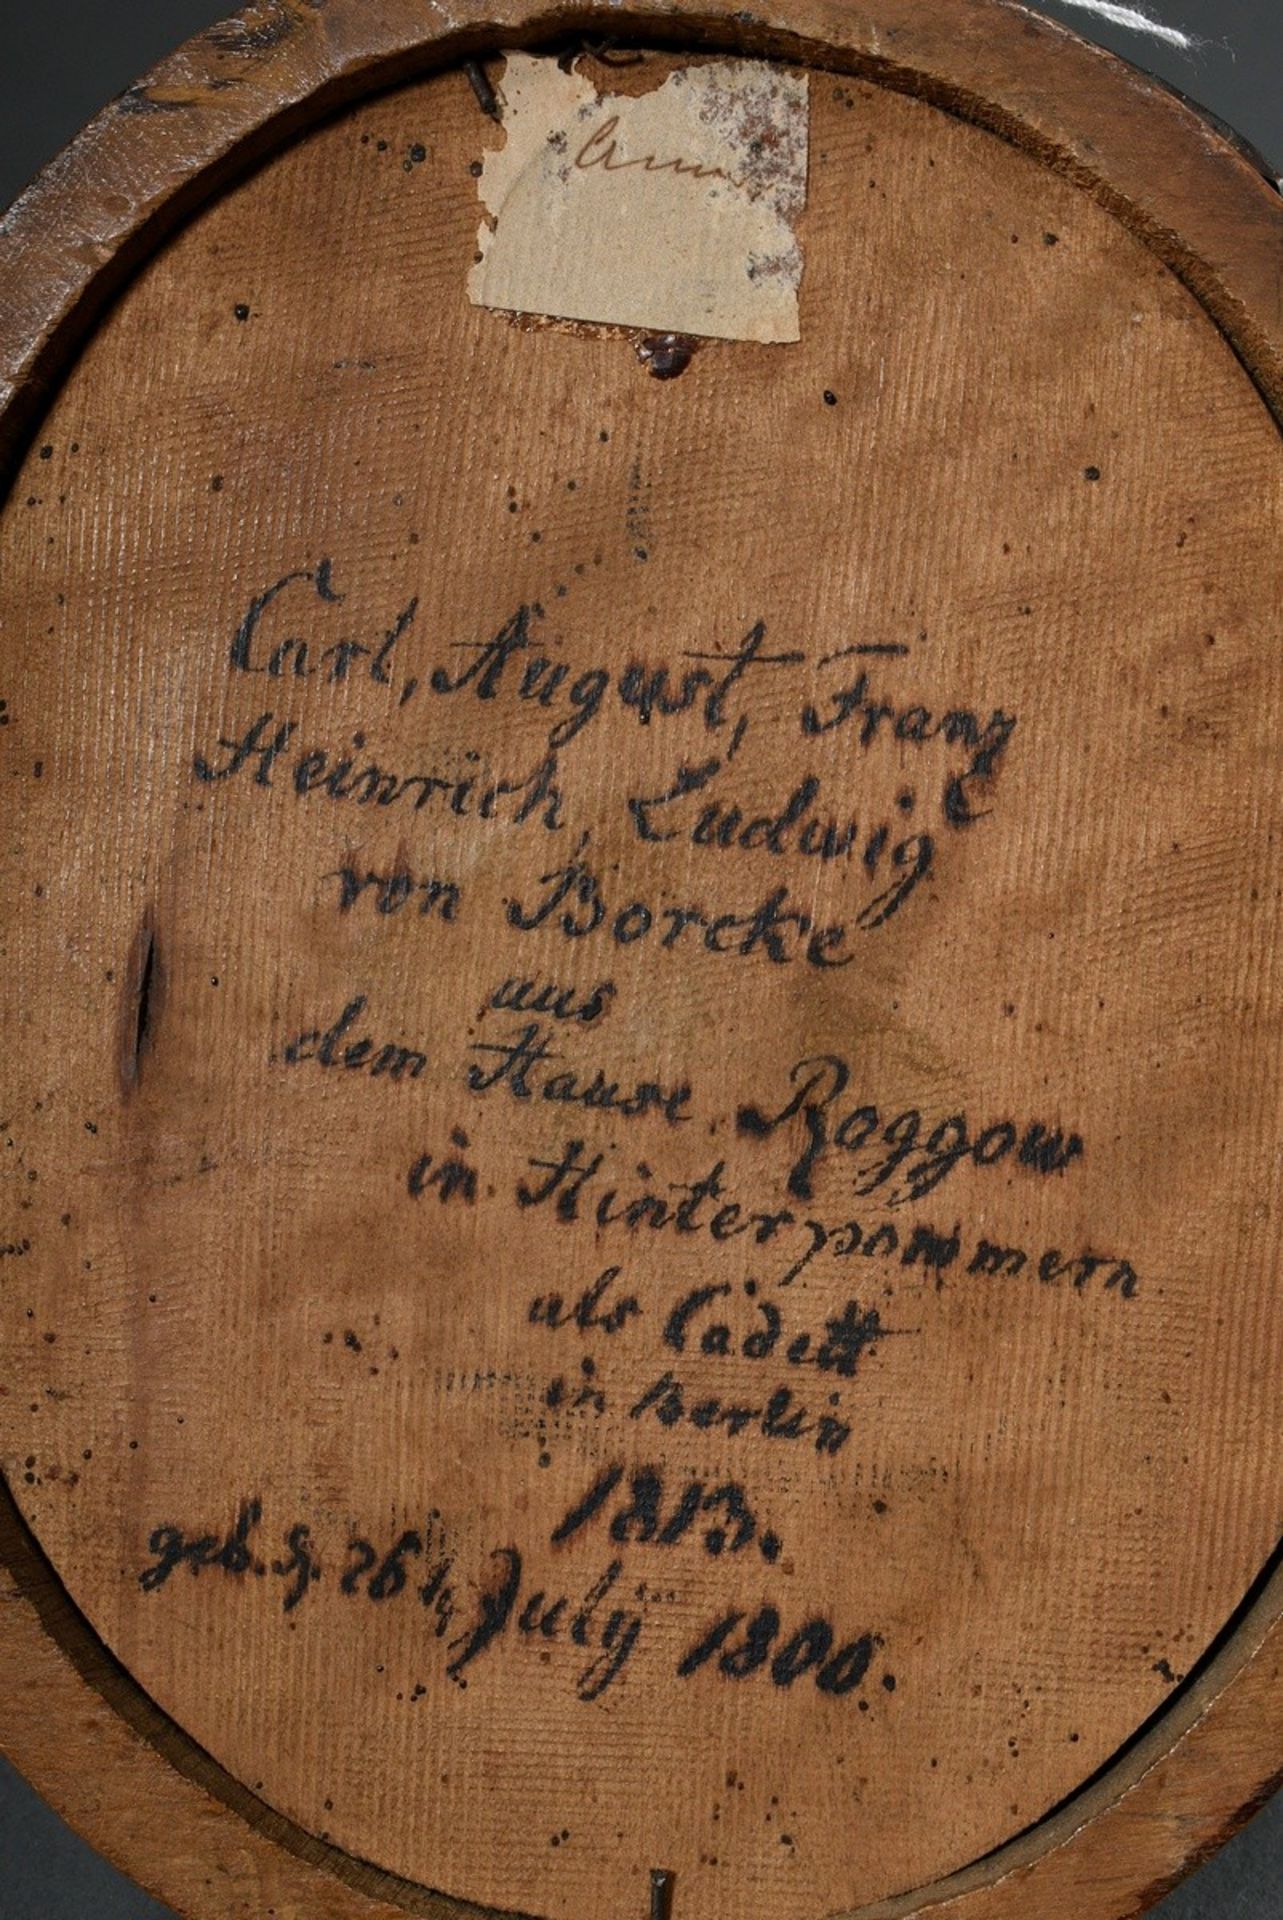 Carl, August, Franz
Heinrich, Ludwig
von Borcke
aus
dem Hause Roggow
in Hinterpommern
als Cadett
in Berlin
1813.
geb. d. 26 July 1800.